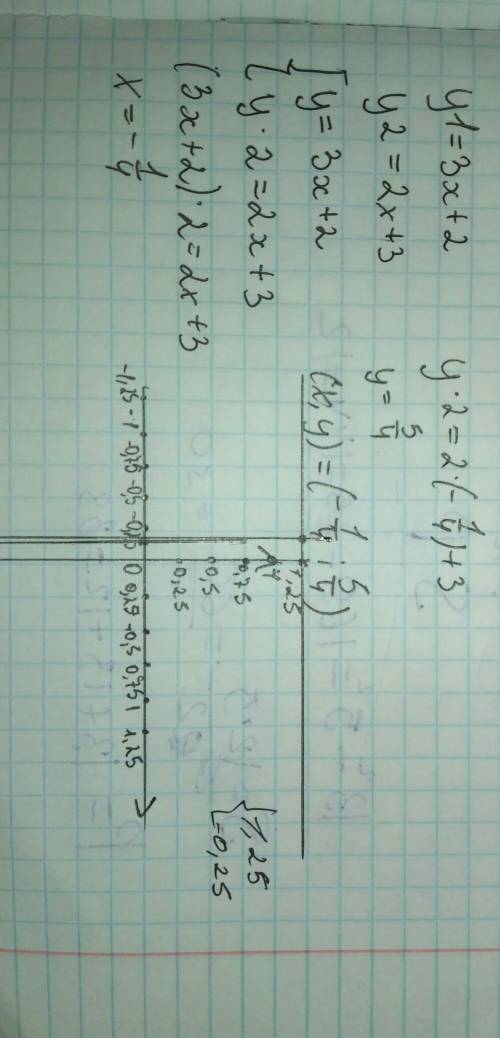 y1=3x+2
y2=2x+3
{y=3x+2
{y·2=2x+3
(3x+2)·2=2x+3
x=-1/4
y·2=2·(-1/4)+3
y=5/4
(x,y)=(-1/4;5/4)
1,25
1
0,75
0,5
0,25
-1,25 -1 -0,75 -0,5 -0,25 0 0,25 -0,5 0,75 1 1,25
{1,25
=0,25